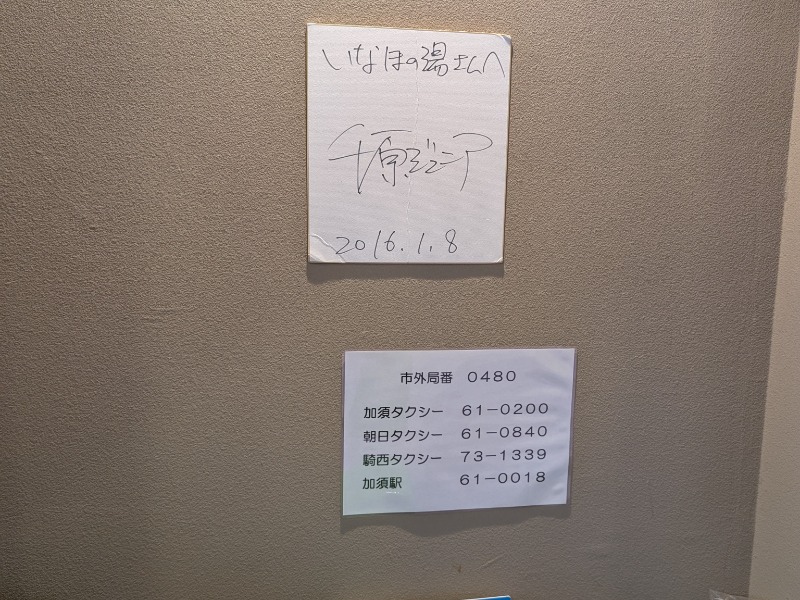 いなほの湯さんへ
千原ジュニア
2016.1.8
市外局番　０４８０
加須タクシー　６１－０２００
朝日タクシー　６１－０８４０
騎西タクシー　７３－１３３９
加須駅　６１－００１８